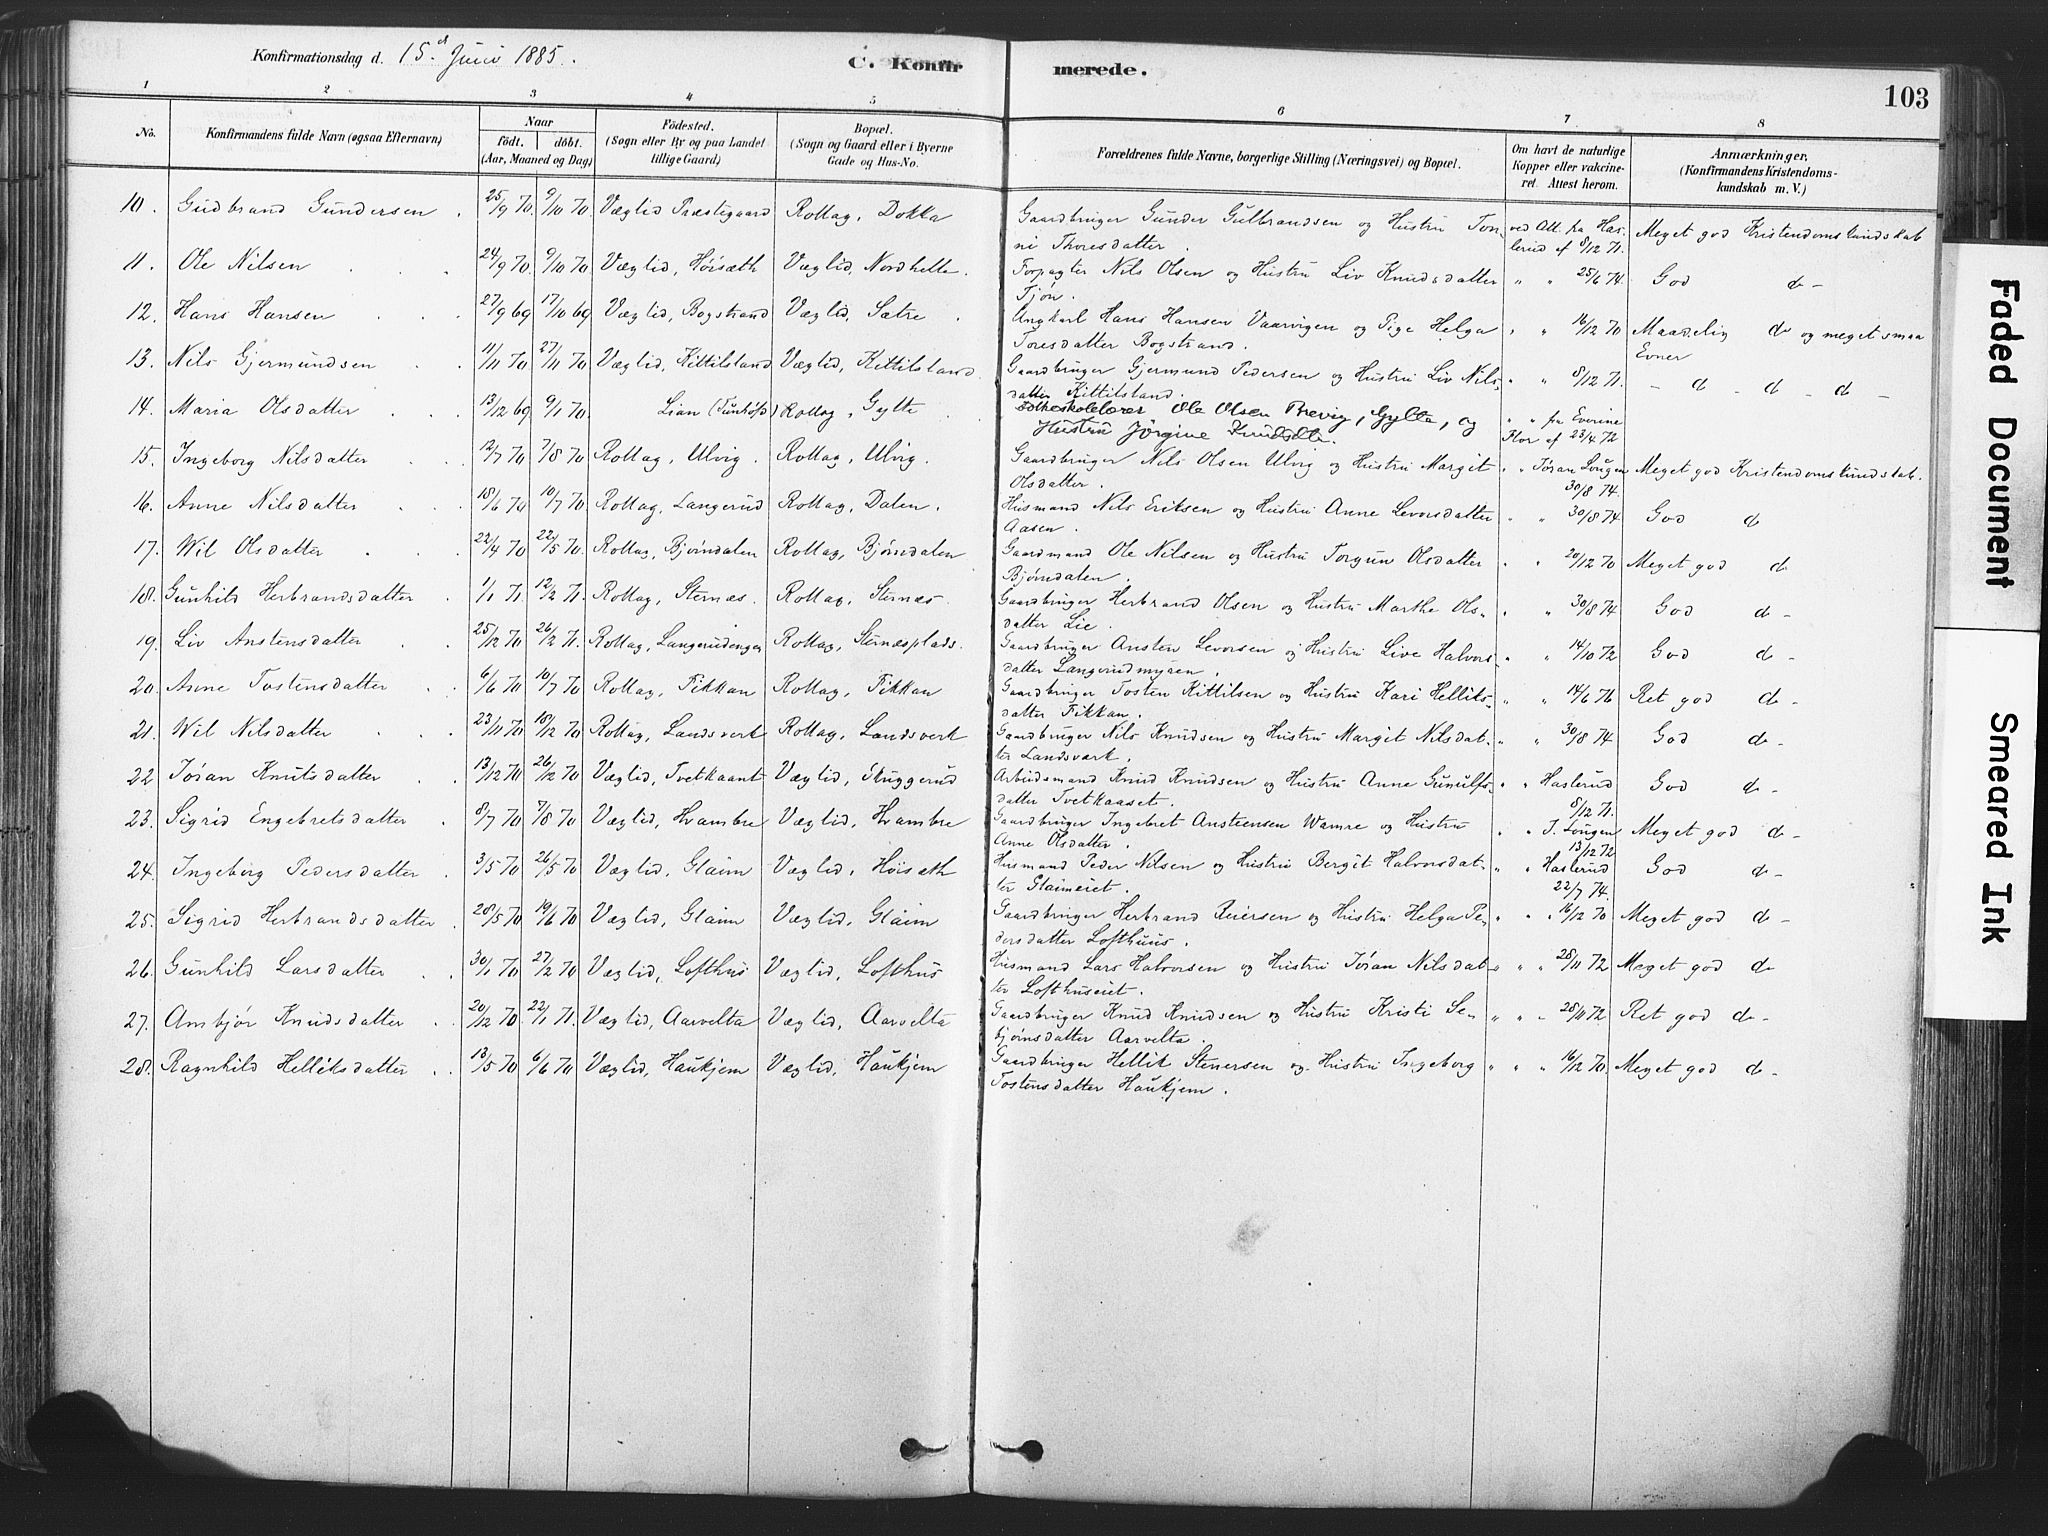 Konfirmationsdag d. 15d Juni 1885.
C. Konfirmerede.
103
1 2 3 4 5 6 7 8
No. Konfirmandens fulde Navn (ogsaa Efternavn) Naar födt. döbt. (Aar, Maaned og Dag) Födested. (Sogn eller By og paa Landet tillige Gaard) Bopæl. (Sogn og Gaard eller i Byerne Gade og Hus-No. Forældrenes fulde Navne, borgerlige Stilling (Næringsvei) og Bopæl. Om havt de naturlige Kopper eller vakcineret. Attest herom. Anmærkninger. (Konfirmandens Kristendomskundskab m. V.)
10. Gudbrand Gundersen 25/9 70. 9/10 70. Væglid Præstegaard Rollag, Dokka Gaardbruger Gunder Gulbrandsen og Hustru Tonni Thoresdatter. ved Att. fra Haslerud af 8/12 71. Meget god Kristendomskundskab
11. Ole Nilsen 24/9 70. 9/10 70. Væglid, Höisæth Væglid, Nordhelle. Forpagter Nils Olsen og Hustru Liv Knudsdatter Tjøn. " " 25/6 74. God d-
12. Hans Hansen 27/9 69 17/10 69 Væglid, Bogstrand Væglid, Sætre. Ungkarl Hans Hansen Vaarvigen og Pige Helga Toresdatter Bogstrand. " " 16/12 70 Maadelig do og meget smaa Evner
13. Nils Gjermundsen 11/11 70 27/11 70 Væglid, Kittilsland Væglid, Kittilsland. Gaardbruger Gjermund Pedersen og Hustru Liv Nilsdatter Kittilsland. " " 8/12 71. - d - d - d -
14. Maria Olsdatter 13/12 69 9/1 70. Lian (Tunhöfd) Rollag, Gylte. Folkeskolelærer Ole Olsen Brevig, Gylte, og Hustru Jörgine Knudsdtr. " " fra Everine Flor af 23/4 72
15. Ingeborg Nilsdatter 12/7 70 7/8 70 Rollag, Ulvig. Rollag, Ulvig. Gaardbruger Nils Olsen Ulvig og Hustru Margit Olsdatter. " " Jöran Lougen 30/8 74. Meget god Kristendomskundskab.
16. Anne Nilsdatter 18/6 70 10/7 70 Rollag, Langerud Rollag, Dalen. Husmand Nils Eriksen og Hustru Anne Levorsdatter Aasen. " " 30/8 74 God d
17. Wil Olsdatter 22/4 70 22/5 70. Rollag, Bjørndalen Rollag, Bjørndalen Gaardmand Ole Nilsen og Hustru Torgun Olsdatter Bjørndalen. " " 20/12 70 Meget god d
18. Gunhild Herbrandsdatter 1/1 71. 12/2 71. Rollag, Sternæs. Rollag, Sternæs. Gaardbruger Herbrand Olsen og Hustru Marthe Olsdatter Lie. " " 30/8 74 God d-
19. Liv Anstensdatter 25/12 70 26/2 71. Rollag, Langerudengen Rollag, Sternæsplads. Gaardbruger Ansten Levorsen og Hustru Live Halvorsdatter Langerudmyren. " " 14/10 72 God d-
20. Anne Tostensdatter 6/6 70 10/7 70 Rollag, Fikkan Rollag, Fikkan Gaardbruger Tosten Kittilsen og Hustru Kari Helliksdatter Fikkan. " " 14/6 76 Ret god d-
21. Wil Nilsdatter 23/11 70 18/12 70 Rollag, Landsverk Rollag, Landsverk Gaardbruger Nils Knudsen og Hustru Margit Nilsdatter Landsverk. " " 30/8 74 God d-
22 Jöran Knutsdatter 13/12 70 26/12 70 Væglid, Tvetkaant Væglid, Skuggerud Arbeidsmand Knud Knudsen og Hustru Anne Gunulfsdatter Tvetkaaset. " " Haslerud 8/12 71. God d-
23. Sigrid Engebretsdatter 8/7 70 7/8 70 Væglid, Hvambre Væglid, Hvambre Gaardbruger Ingebret Anstensen Wamre og Hustru Anne Olsdatter. " " J. Lougen 13/12 72 Meget god d-
24. Ingeborg Pedersdatter 3/5 70 26/5 70 Væglid, Glaim Væglid, Höisæth Husmand Peder Nilsen og Hustru Bergit Halvorsdatter Glaimeiet. " " Haslerud 22/7 74. God d-
25. Sigrid Herbrandsdatter. 28/5 70 19/6 70 Væglid, Glaim Væglid, Glaim Gaardbruger Herbrand Reiersen og Hustru Helga Pedersdatter Lofthuus. " " " 16/12 70 Meget god d-
26. Gunhild Larsdatter 30/1 70 27/2 70 Væglid, Lofthus Væglid, Lofthus Husmand Lars Halvorsen og Hustru Jöran Nilsdatter Lofthuseiet. " " " 28/11 72 Meget god d
27. Ambjör Knudsdatter 20/12 70. 22/1 71. Væglid, Aarvelta Væglid, Aarvelta Gaardbruger Knud Knudsen og Hustru Kristi Sebjörnsdatter Aarvelta. " " " 28/11 72 Ret god d-
28. Ragnhild Helliksdatter 13/5 70 6/6 70 Væglid, Haukjem Væglid, Haukjem Gaardbruger Hellik Stenersen og Hustru Ingeborg Tostensdatter Haukjem. " " " 16/12 70. Meget god d-
Faded Document
Smeared Ink